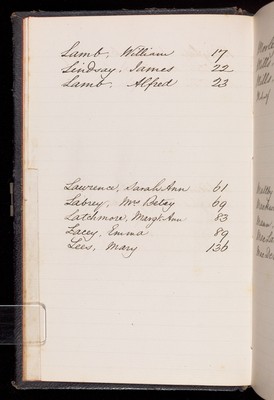 Lamb, William 17
Lindsay, James 22
Lamb, Alfred 23
Lawrence, Sarah Ann 61
Labrey, Mrs Betsy 69
Latchmore, Margt Ann 83
Lacey, Emma 89
Lees, Mary 136